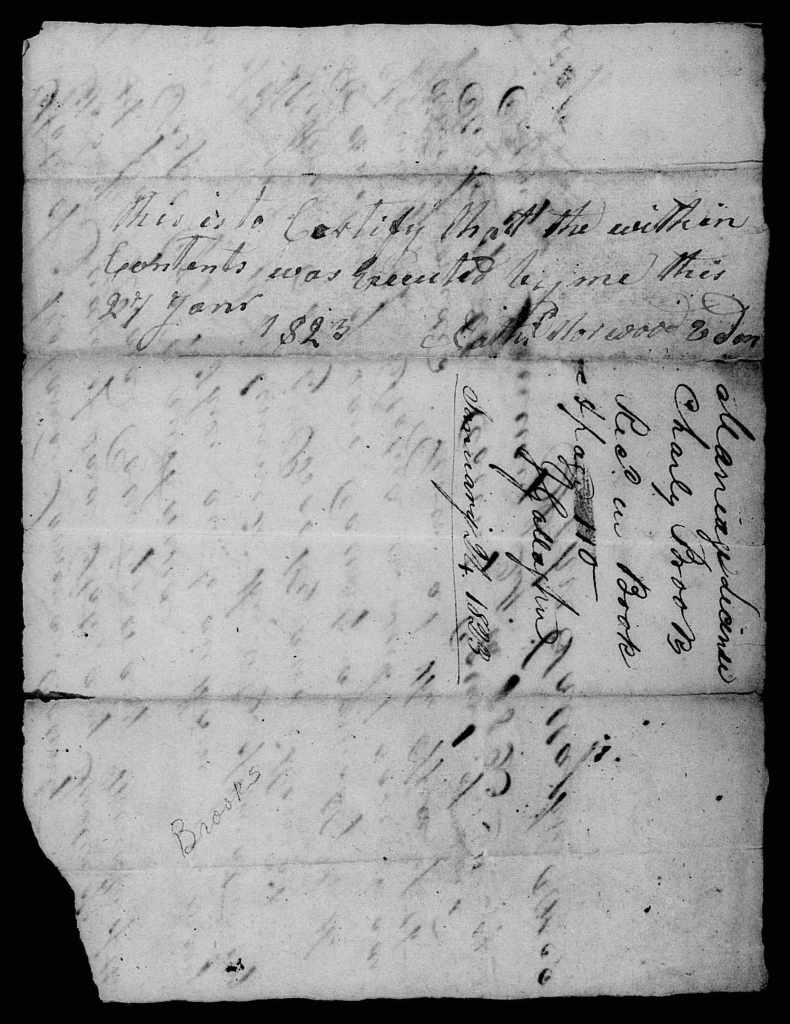 this is to Certify that the within
Contents was Executed by me this
27 Janr 1823
Norwood
Marriage License
Charly Brook
Recd in Book
& page 110
Gallagher
January 24. 1823
Brooks